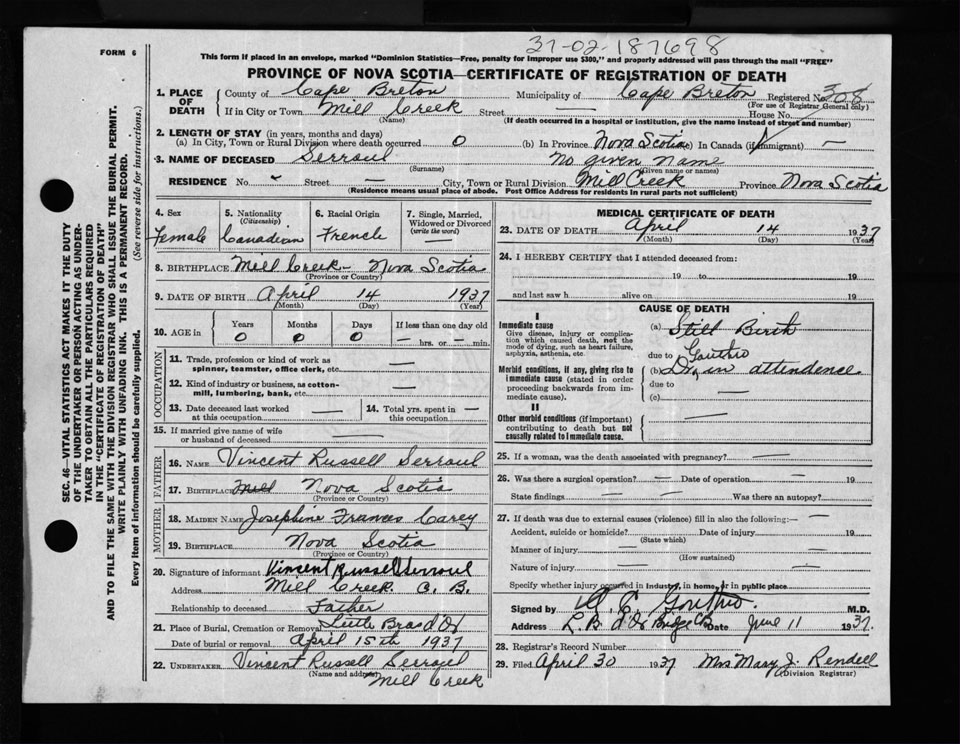 37-02-187698
FORM 6
This form if placed in an envelope, marked "Dominion Statistics—Free, penalty for improper use $300," and properly addressed will pass through the mail "FREE"
PROVINCE OF NOVA SCOTIA—CERTIFICATE OF REGISTRATION OF DEATH
1. PLACE OF DEATH
County of Cape Breton Municipality of Cape Breton Registered No. 308
(For use of Registrar General only)
If in City or Town Mill Creek Street — House No.
(Name) (If death occurred in a hospital or institution, give the name instead of street and number)
2. LENGTH OF STAY (in years, months and days)
(a) In City, Town or Rural Division where death occurred 0 (b) In Province Nova Scotia (c) In Canada (if immigrant) —
3. NAME OF DECEASED Serroul No given name
(Surname) (Given name or names)
RESIDENCE No. - Street — City, Town or Rural Division Mill Creek Province Nova Scotia
(Residence means usual place of abode. Post Office Address for residents in rural parts not sufficient)
4. Sex
Female
5. Nationality
(Citizenship)
Canadian
6. Racial Origin
French
7. Single, Married, Widowed or Divorced
(write the word)
—
8. BIRTHPLACE Mill Creek - Nova Scotia
(Province or Country)
9. DATE OF BIRTH April 14 1937
(Month) (Day) (Year)
10. AGE in
Years Months Days If less than one day old
0 0 0 — hrs. or — min.
OCCUPATION
11. Trade, profession or kind of work as
spinner, teamster, office clerk, etc. —
12. Kind of industry or business, as cotton-
mill, lumbering, bank, etc. —
13. Date deceased last worked
at this occupation —
14. Total yrs. spent in
this occupation —
15. If married give name of wife
or husband of deceased —
FATHER
16. NAME Vincent Russell Serroul
17. BIRTHPLACE Mill Nova Scotia
(Province or Country)
MOTHER
18. MAIDEN NAME Josephine Frances Carey
19. BIRTHPLACE Nova Scotia
(Province or Country)
20. Signature of informant Vincent Russell Serroul
Address Mill Creek C. B.
Relationship to deceased Father
21. Place of Burial, Cremation or Removal Little Bras d'Or
Date of burial or removal April 15th 1937
22. UNDERTAKER Vincent Russell Serroul
(Name and address) Mill Creek
MEDICAL CERTIFICATE OF DEATH
23. DATE OF DEATH April 14 1937
(Month) (Day) (Year)
24. I HEREBY CERTIFY that I attended deceased from:
19 to 19
and last saw h alive on 19
CAUSE OF DEATH
I
Immediate cause
Give disease, injury or complica-
tion which caused death, not the
mode of dying, such as heart failure,
asphyxia, asthenia, etc.
(a) Still Birth
due to Gouthro
Morbid conditions, if any, giving rise to
immediate cause (stated in order
proceeding backwards from im-
mediate cause).
(b) Dr. in attendence
due to —
(c) —
II
Other morbid conditions (if important)
contributing to death but not
causally related to immediate cause. —
25. If a woman, was the death associated with pregnancy? —
26. Was there a surgical operation? — Date of operation —
State findings — — Was there an autopsy? —
27. If death was due to external causes (violence) fill in also the following:— —
Accident, suicide or homicide? — Date of injury — 19
(State which)
Manner of injury —
(How sustained)
Nature of injury — —
Specify whether injury occurred in industry, in home, or in public place
Signed by Gouthro. M.D.
Address L. B. d'Or Bridge CB Date June 11 1937.
28. Registrar's Record Number
29. Filed April 30 1937 Mrs Mary J. Rendell
(Division Registrar)
SEC. 46—VITAL STATISTICS ACT MAKES IT THE DUTY
OF THE UNDERTAKER OR PERSON ACTING AS UNDER-
TAKER TO OBTAIN ALL THE PARTICULARS REQUIRED
IN THE "CERTIFICATE OF REGISTRATION OF DEATH"
AND TO FILE THE SAME WITH THE DIVISION REGISTRAR WHO SHALL ISSUE THE BURIAL PERMIT.
WRITE PLAINLY WITH UNFADING INK. THIS IS A PERMANENT RECORD.
Every item of information should be carefully supplied. (See reverse side for instructions.)